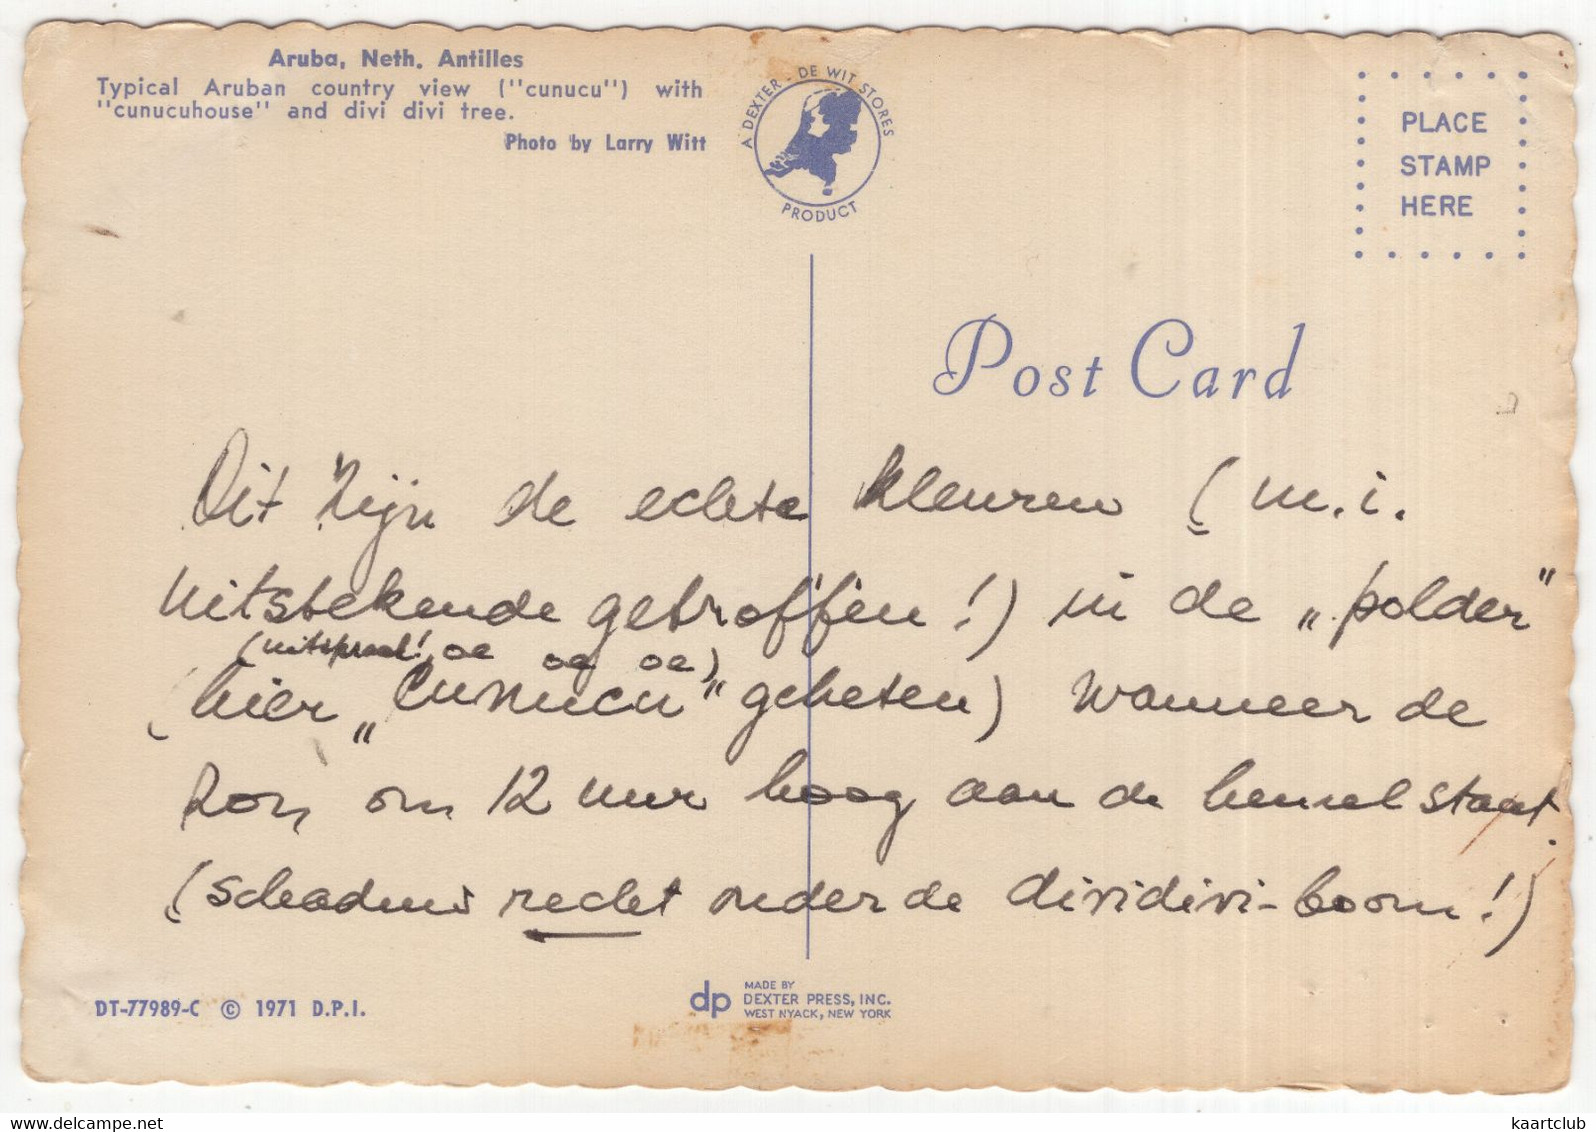 Aruba, Neth. Antilles
Typical Aruban country view ("cunucu") with
"cunucuhouse" and divi divi tree.
Photo by Larry Witt
A DEXTER - DE WIT STORES
PRODUCT
PLACE
STAMP
HERE
Post Card
Dit zijn de echte kleuren (m.i.
uitstekende getroffen!) in de „polder"
(uitspraak! oe oe oe)
(hier „Cunucu" geheten) wanneer de
zon om 12 uur hoog aan de hemel staat.
(schaduw recht onder de dividivi-boom!)
DT-77989-C © 1971 D.P.I.
dp
MADE BY
DEXTER PRESS, INC.
WEST NYACK, NEW YORK
www.delcampe.net
kaartclub